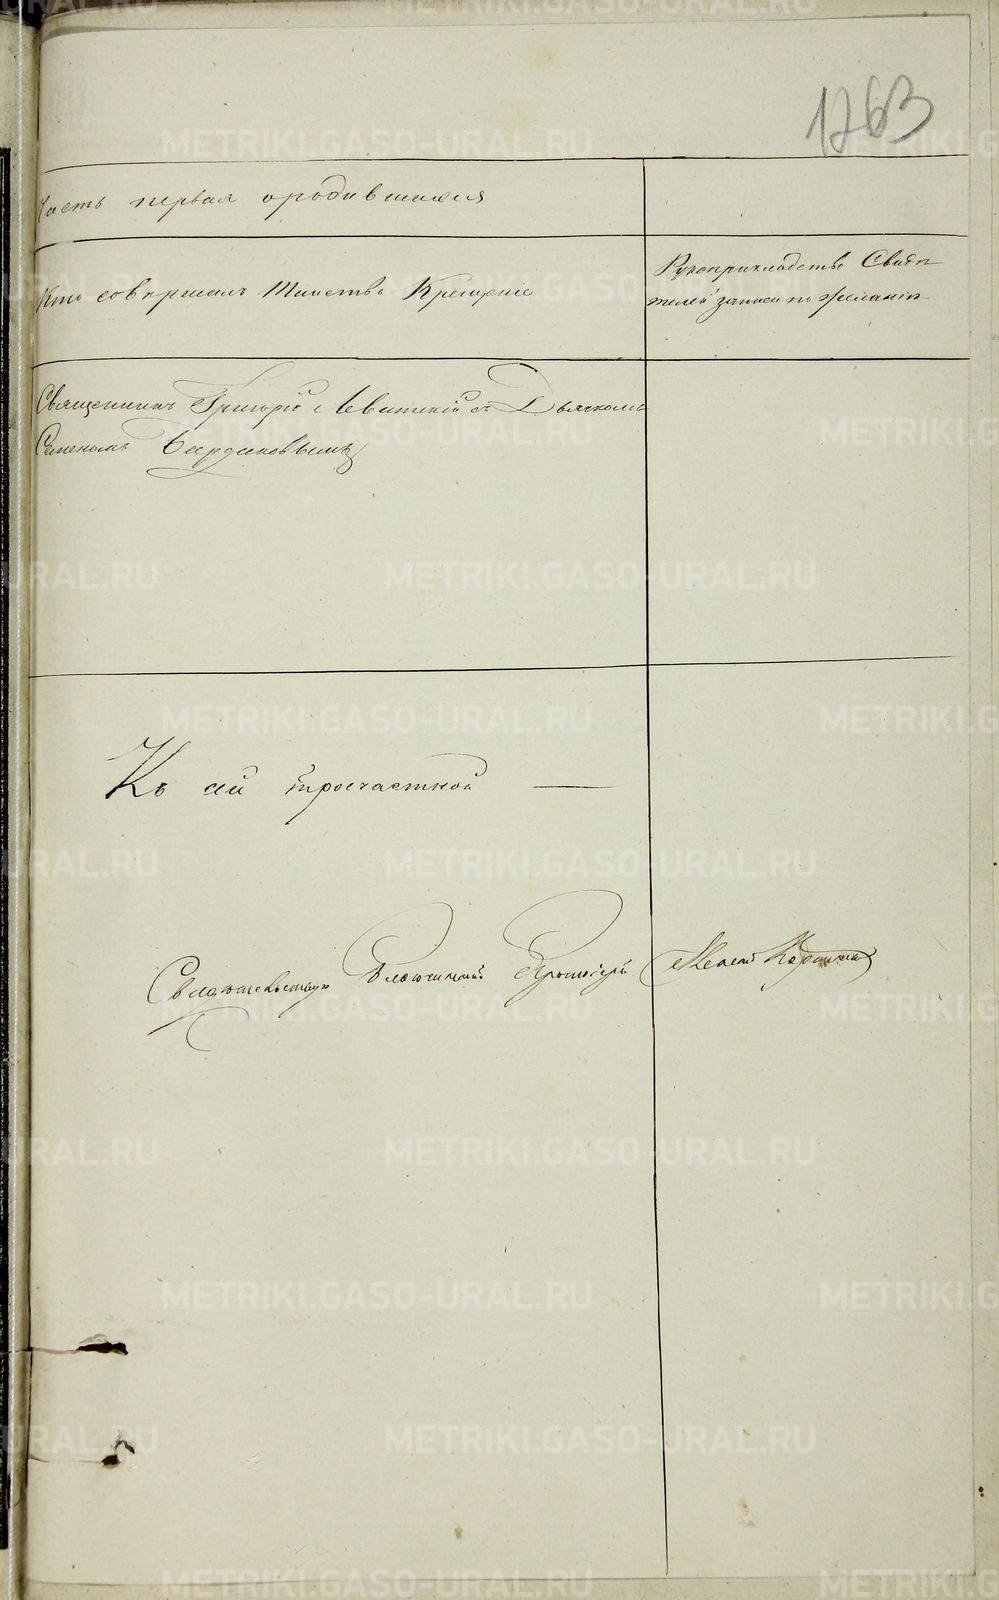 1263
Часть первая о родившихся
Кто совершалъ Таинство Крещенія
Рукоприкладство Свидѣ
телей записи по желанію
Священникъ Григорій Левитскій съ Дьячкомъ
Семеномъ
Къ сей троечастной
Свидѣтельствую Благочинный Протоіерей
METRIKI.GASO-URAL.RU